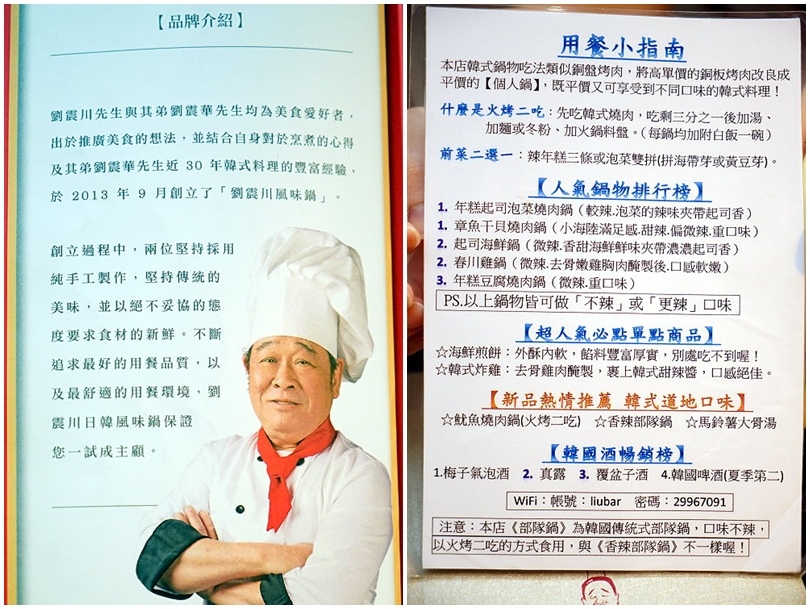 【品牌介紹】
劉震川先生與其弟劉震華先生均為美食愛好者，
出於推廣美食的想法，並結合自身對於烹煮的心得
及其弟劉震華先生近 30 年韓式料理的豐富經驗，
於 2013 年 9 月創立了「劉震川風味鍋」。
創立過程中，兩位堅持採用
純手工製作，堅持傳統的
美味，並以絕不妥協的態
度要求食材的新鮮。不斷
追求最好的用餐品質，以
及最舒適的用餐環境，劉
震川日韓風味鍋保證
您一試成主顧。
用餐小指南
本店韓式鍋物吃法類似銅盤烤肉，將高單價的銅板烤肉改良成
平價的【個人鍋】，既平價又可享受到不同口味的韓式料理！
什麼是火烤二吃：先吃韓式燒肉，吃剩三分之一後加湯、
加麵或冬粉、加火鍋料盤。（每鍋均加附白飯一碗）
前菜二選一：辣年糕三條或泡菜雙拼(拼海帶芽或黃豆芽)。
【人氣鍋物排行榜】
1. 年糕起司泡菜燒肉鍋（較辣.泡菜的辣味夾帶起司香）
1. 章魚干貝燒肉鍋（小海陸滿足感.甜辣.偏微辣.重口味）
2. 起司海鮮鍋（微辣.香甜海鮮鮮味夾帶濃濃起司香）
2. 春川雞鍋（微辣.去骨嫩雞胸肉醃製後.口感軟嫩）
3. 年糕豆腐燒肉鍋（微辣.重口味）
PS.以上鍋物皆可做「不辣」或「更辣」口味
【超人氣必點單點商品】
☆海鮮煎餅：外酥內軟，餡料豐富厚實，別處吃不到喔！
☆韓式炸雞：去骨雞肉醃製，裹上韓式甜辣醬，口感絕佳。
【新品熱情推薦 韓式道地口味】
☆魷魚燒肉鍋(火烤二吃) ☆香辣部隊鍋 ☆馬鈴薯大骨湯
【韓國酒暢銷榜】
1.梅子氣泡酒 2. 真露 3. 覆盆子酒 4.韓國啤酒(夏季第二)
WiFi：帳號：liubar 密碼：29967091
注意：本店《部隊鍋》為韓國傳統式部隊鍋，口味不辣，
以火烤二吃的方式食用，與《香辣部隊鍋》不一樣喔！